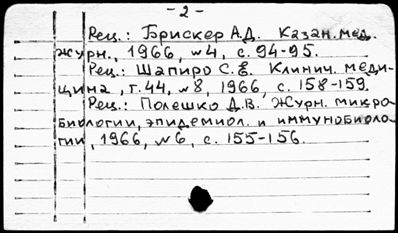 - 2 -
Рец.: Брискер А.Д. Казан. мед.
журн., 1966, №4, с. 94-95.
Рец.: Шапиро С.Е. Клинич. меди-
цина, т. 44, №8, 1966, с. 158-159.
Рец.: Полешко Д.В. Журн. микро
биологии, эпидемиол. и иммунобиоло-
гии, 1966, №6, с. 155-156.